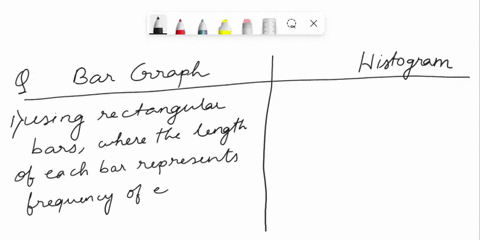 Q Bar Graph
Histogram
1) using rectangular
bars, where the length
of each bar represents
frequency of e